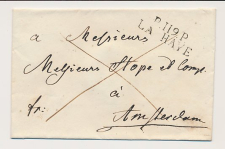 P.119.P.
LA HAYE
a Messieurs
Messieurs Hope et Comp.
à
fr:
Amsterdam